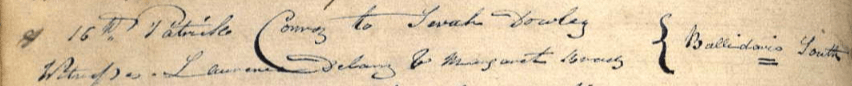 16th Patrick Conroy to Sarah Dowley { Ballidavis South
Witnesses. Laurence Delany & Margaret